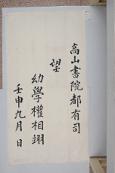 高山書院都有司
望
幼學權相翊
壬申九月 日